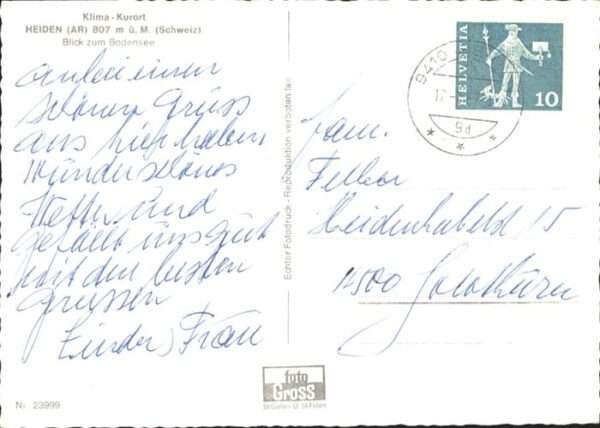 Klima - Kurort
HEIDEN (AR) 807 m ü. M. (Schweiz)
Blick zum Bodensee
einen
schönen Gruss
aus hier haben
wunderschönes
Wetter und
gefällt uns gut
mit den besten
Grüssen
Frau
Echter Fotodruck - Reproduktion verboten
HELVETIA
10
9410
9d
Fam.
Felber
15
4500 Solothurn
foto
Gross
St. Gallen
Nr. 23999